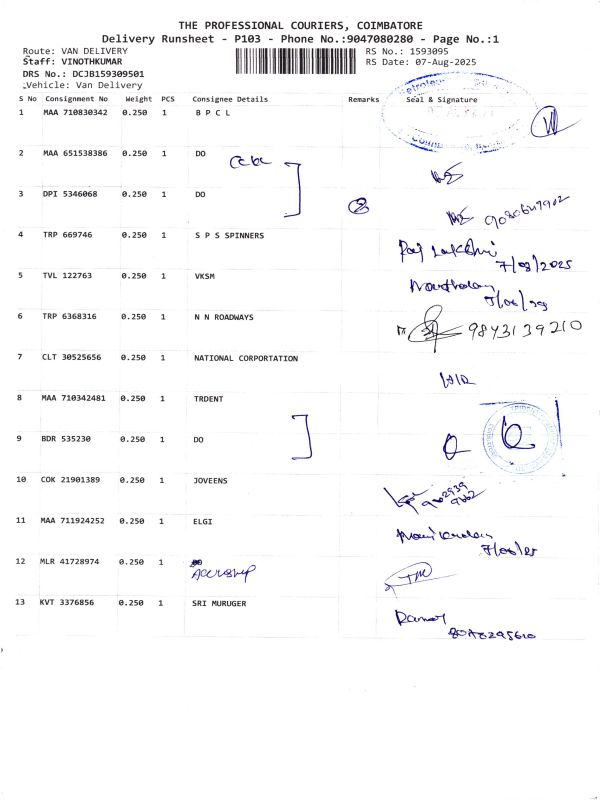 THE PROFESSIONAL COURIERS, COIMBATORE
Delivery Runsheet - P103 - Phone No.:9047080280 - Page No.:1
Route: VAN DELIVERY
RS No.: 1593095
Staff: VINOTHKUMAR
RS Date: 07-Aug-2025
DRS No.: DCJB159309501
Vehicle: Van Delivery
S No Consignment No Weight PCS Consignee Details Remarks Seal & Signature
1 MAA 710830342 0.250 1 B P C L
2 MAA 651538386 0.250 1 DO
3 DPI 5346068 0.250 1 DO
4 TRP 669746 0.250 1 S P S SPINNERS
7/08/2025
5 TVL 122763 0.250 1 VKSM
6 TRP 6368316 0.250 1 N N ROADWAYS
9843139210
7 CLT 30525656 0.250 1 NATIONAL CORPORTATION
8 MAA 710342481 0.250 1 TRDENT
9 BDR 535230 0.250 1 DO
10 COK 21901389 0.250 1 JOVEENS
11 MAA 711924252 0.250 1 ELGI
12 MLR 41728974 0.250 1
13 KVT 3376856 0.250 1 SRI MURUGER